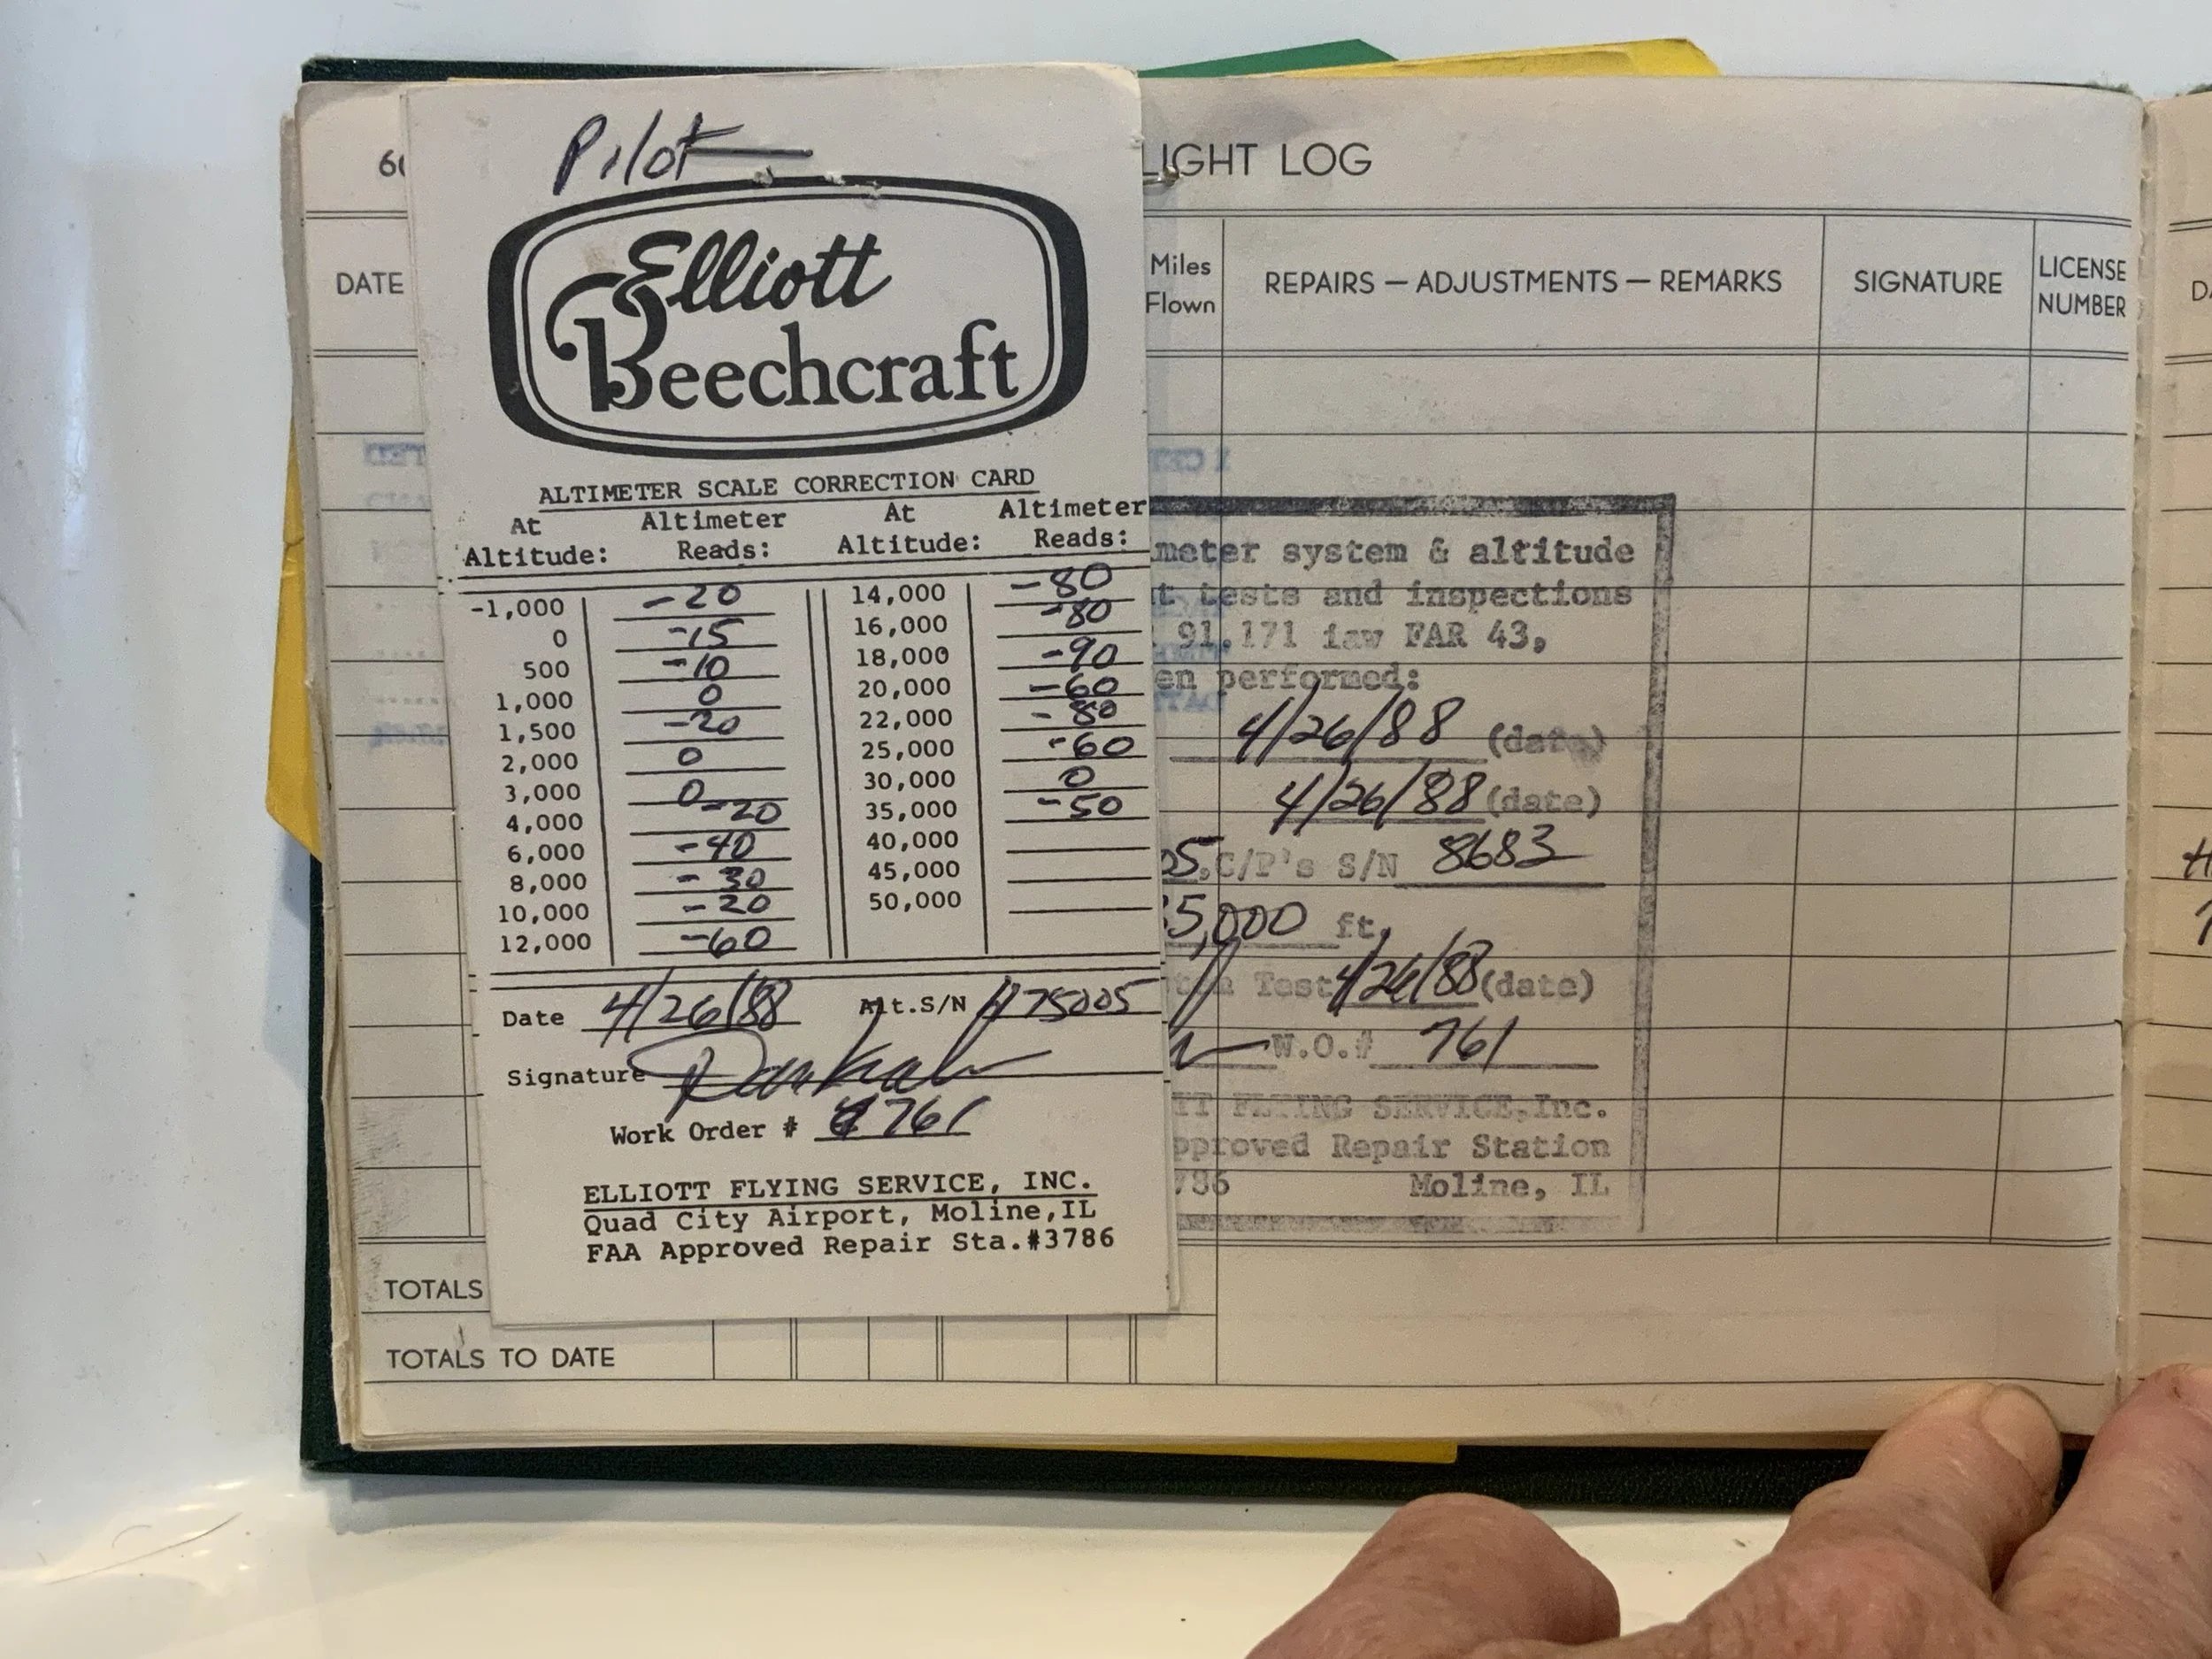 Pilot
Elliott
Beechcraft
ALTIMETER SCALE CORRECTION CARD
At Altitude: Altimeter Reads: At Altitude: Altimeter Reads:
-1,000 -20 14,000 -80
0 -15 16,000 -80
500 -10 18,000 -90
1,000 0 20,000 -60
1,500 -20 22,000 -80
2,000 0 25,000 -60
3,000 0 30,000 0
4,000 -20 35,000 -50
6,000 -40 40,000
8,000 -30 45,000
10,000 -20 50,000
12,000 -60
Date 4/26/88 Alt.S/N
Signature
Work Order # 761
ELLIOTT FLYING SERVICE, INC.
Quad City Airport, Moline,IL
FAA Approved Repair Sta.#3786
LIGHT LOG
DATE Miles Flown REPAIRS — ADJUSTMENTS — REMARKS SIGNATURE LICENSE NUMBER
meter system & altitude
t tests and inspections
91.171 iaw FAR 43,
en performed:
4/26/88 (date)
4/26/88 (date)
05, C/P's S/N 8683
5,000 ft.
Test 4/26/88 (date)
W.O.# 761
TT FLYING SERVICE, Inc.
pproved Repair Station
786 Moline, IL
TOTALS
TOTALS TO DATE